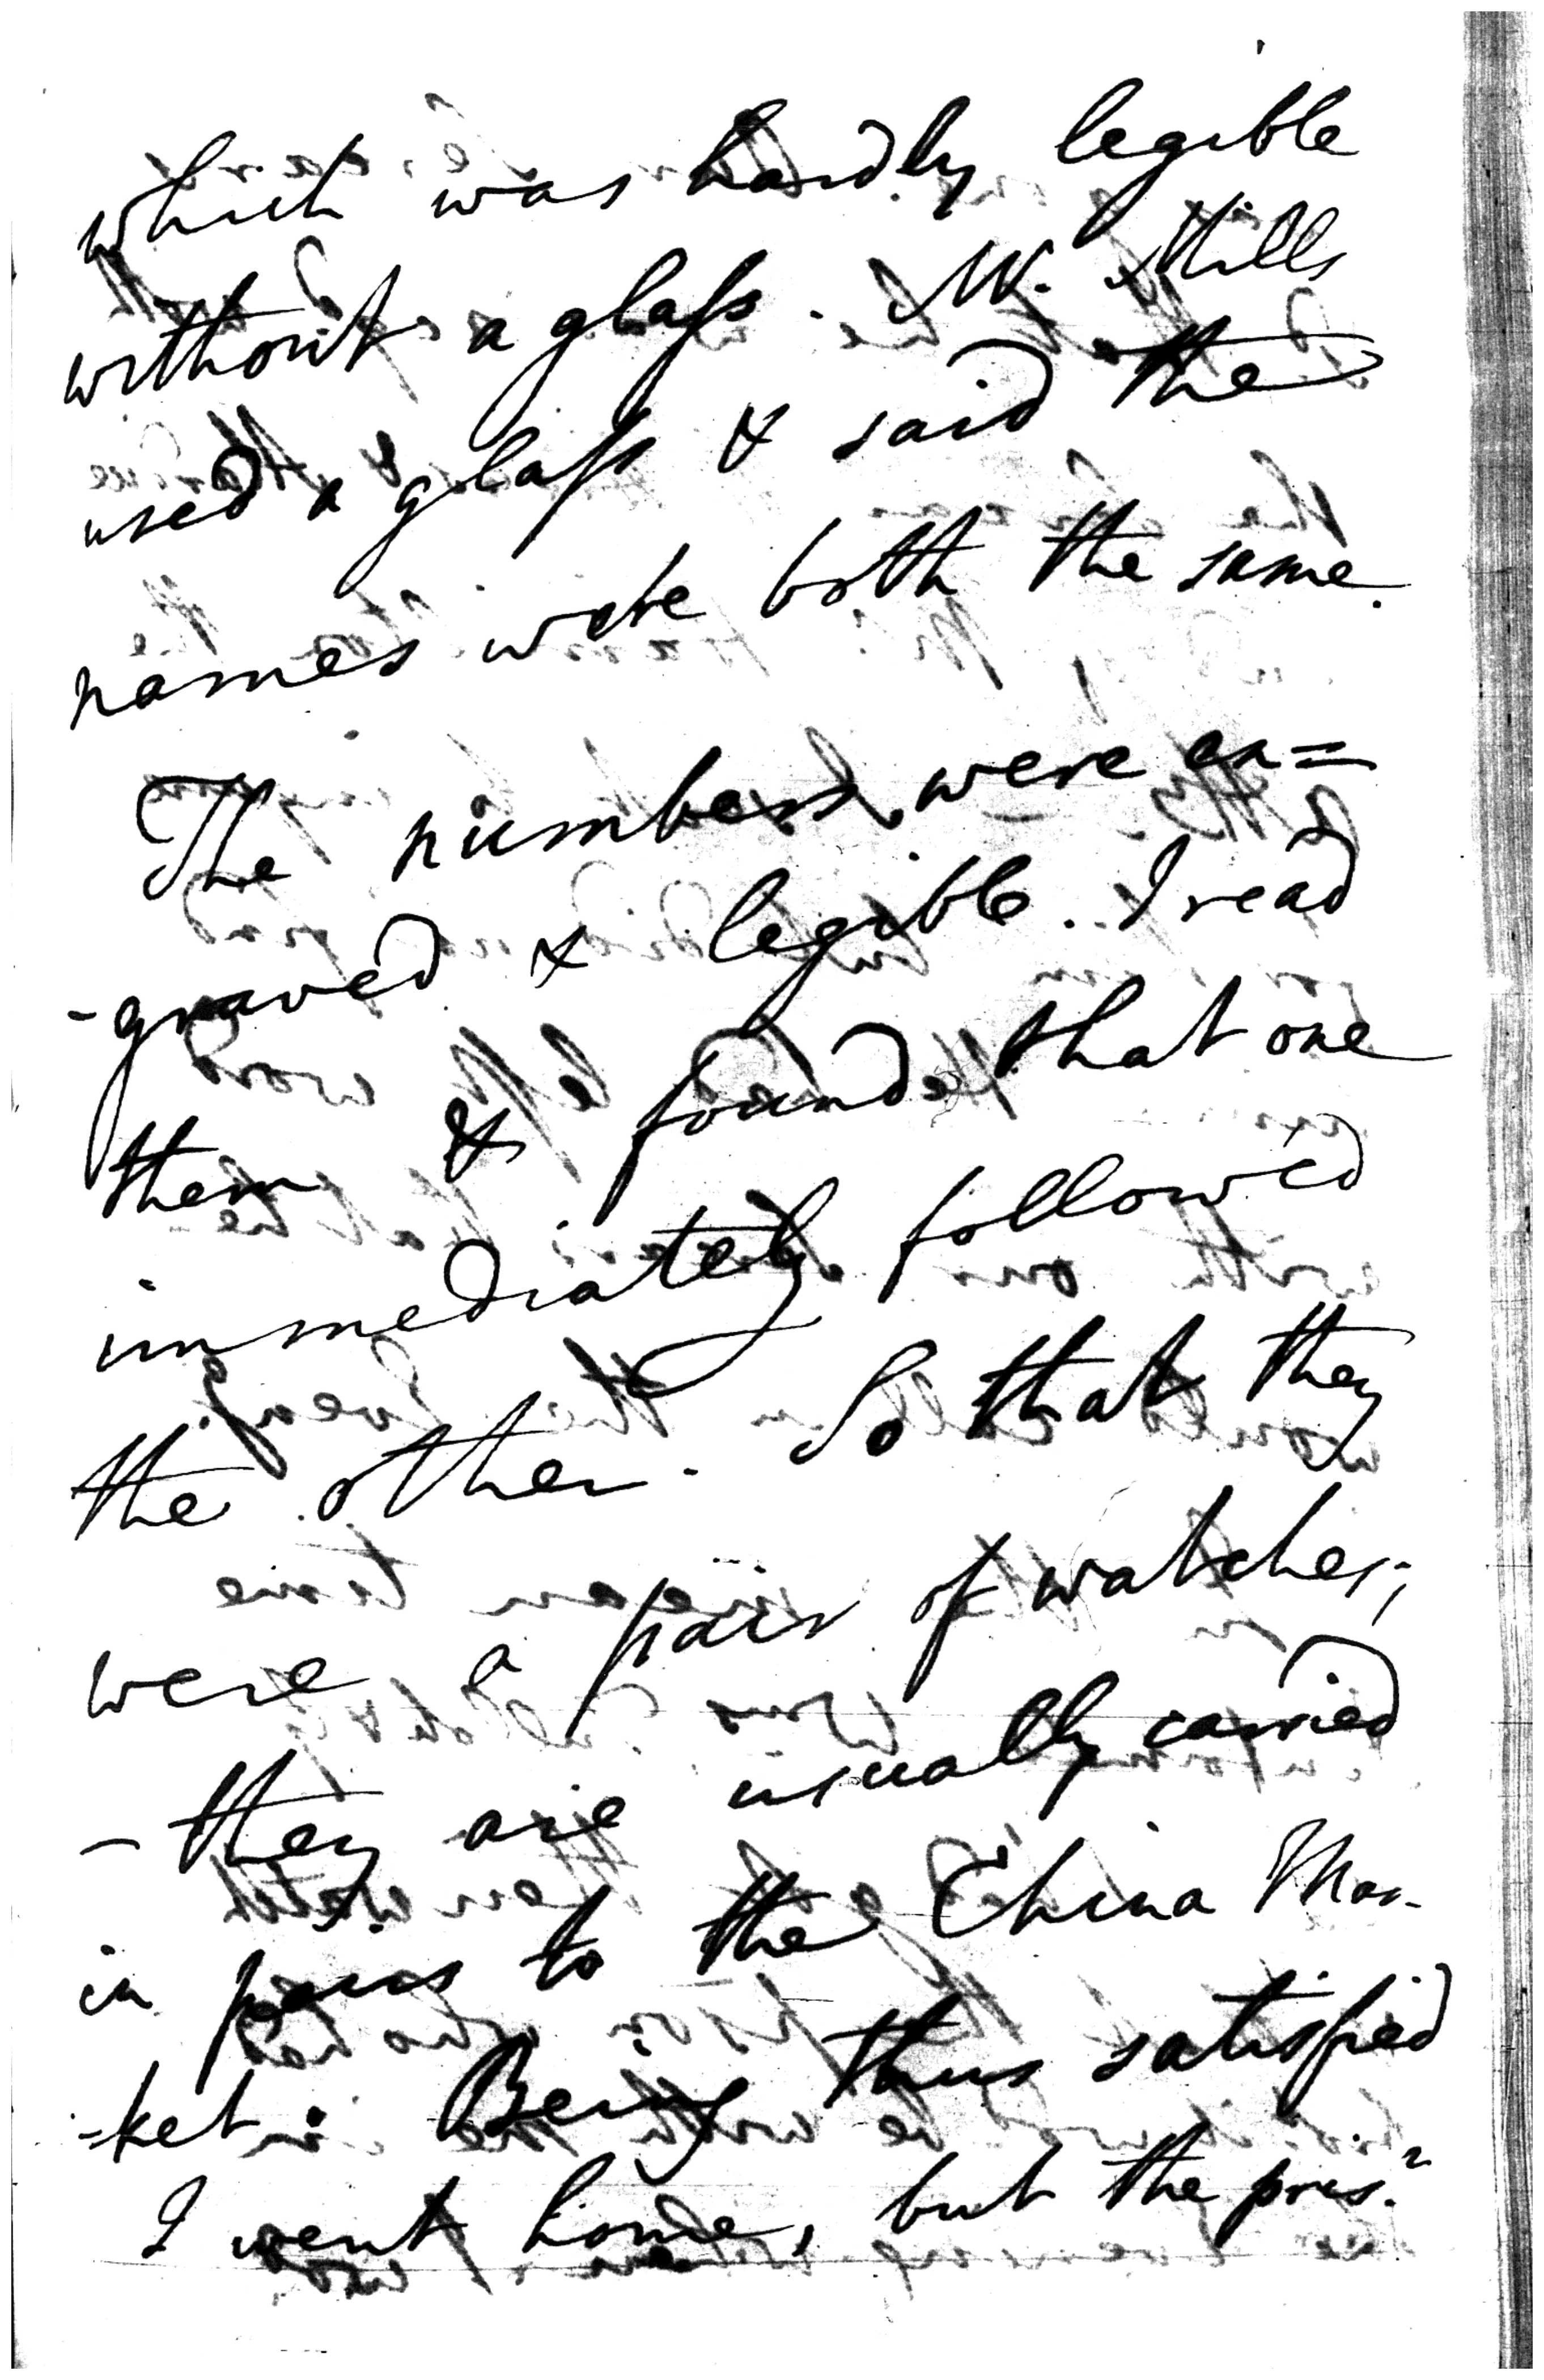 which was hardly legible
without a glass. W. Mills
used a glass & said the
names were both the same.
The numbers were en=
-graved & legible. I read
them & found that one
immediately followed
the other. So that they
were a pair of watches;
- they are usually carried
in pairs to the China Mar-
-ket. Being thus satisfied
I went home, but the pris.r